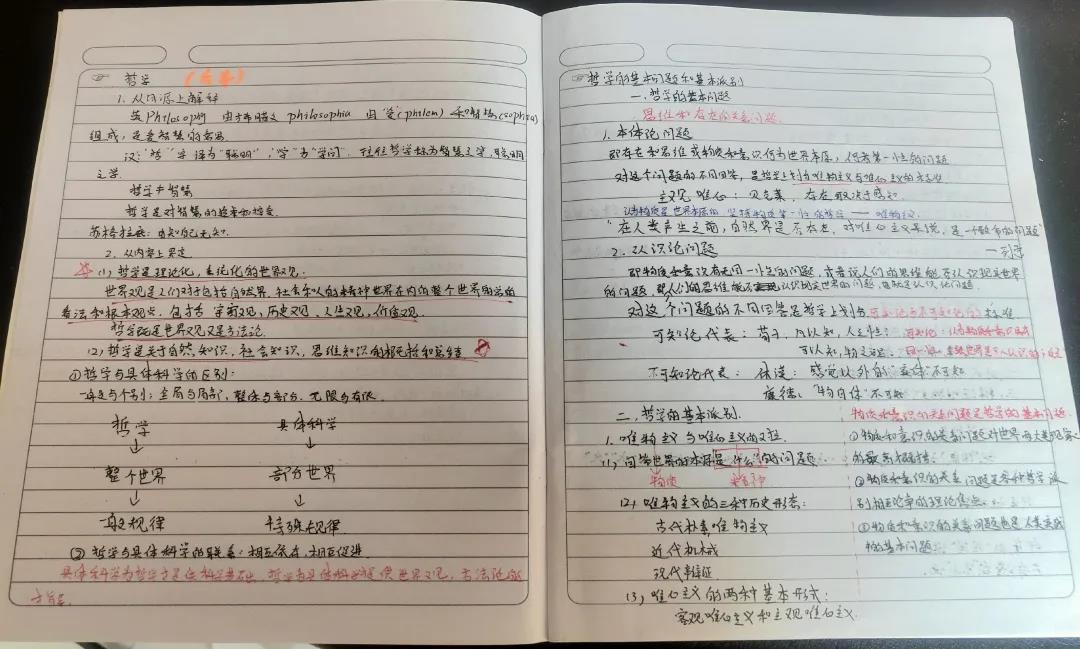 哲学
1. 从词源上解释
英Philosophy 由古希腊文 philosophia 由"爱"(philem)和"智慧"(sophia)
组成,是爱智慧的意思
汉:"哲"字译为"聪明","学"为"学问". 往往哲学称为智慧之学,聪明
之学.
哲学≠智慧
哲学是对智慧的追求和探究.
苏格拉底:自知自己无知.
2. 从内容上界定
(1) 哲学是理论化,系统化的世界观.
世界观是人们对于包括自然界、社会和人的精神世界在内的整个世界的总的
看法和根本观点. 包括 宇宙观,历史观,人生观,价值观.
哲学既是世界观又是方法论
(2) 哲学是关于自然知识、社会知识、思维知识的概括和总结
①哲学与具体科学的区别:
一般与个别;全局与局部,整体与部分. 无限与有限.
哲学 具体科学
整个世界 部分世界
一般规律 特殊规律
② 哲学与具体科学的联系:相互依存,相互促进
具体科学为哲学提供科学基础,哲学为具体科学提供世界观,方法论的
指导.
哲学的基本问题和基本派别
一. 哲学的基本问题
思维和存在的关系问题.
1. 本体论问题
即存在和思维或物质和意识何为世界本原,何者第一性的问题
对这个问题的不同回答,是哲学上划分唯物主义与唯心主义的标准
主观唯心:贝克莱,存在取决于感知
"在人类产生之前,自然界是否存在,对唯心主义来说,是一个致命的问题"
—列宁
2. 认识论问题
即物质和意识有无同一性的问题,或者说人们的思维能否认识现实世界
的问题.
对这个问题的不同回答是哲学上划分可知论与不可知论的标准
可知论代表:荀子,凡以知,人之性;
可以知,物之理.
不可知论代表:休谟:感觉以外的"实体"不可知
康德:"物自体"不可知
二. 哲学的基本派别.
1. 唯物主义与唯心主义的对立.
(1) 回答世界的本原是"什么"的问题
物质
(2) 唯物主义的三种历史形态:
古代朴素唯物主义
近代机械
现代辩证.
(3) 唯心主义的两种基本形式:
客观唯心主义和主观唯心主义.
物质和意识的关系问题是哲学的基本问题.
①物质和意识的关系问题对世界两大类现象
的最高概括.
②物质和意识的关系问题是各种哲学派
别相互论争的理论焦点
③物质和意识的关系问题也是人类实践
的基本问题